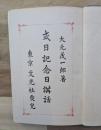 大元茂一郎著
歳日記念日講話
東京 文光社發兌